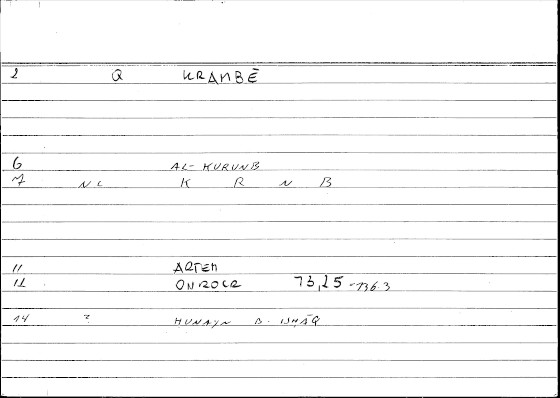 2 Q KRAMBĒ
6 AL-KURUNB
7 NL K R N B
11 ARTEM
12 ONIROCR 73,25-736.3
14 ? HUNAYN B. ISHĀQ